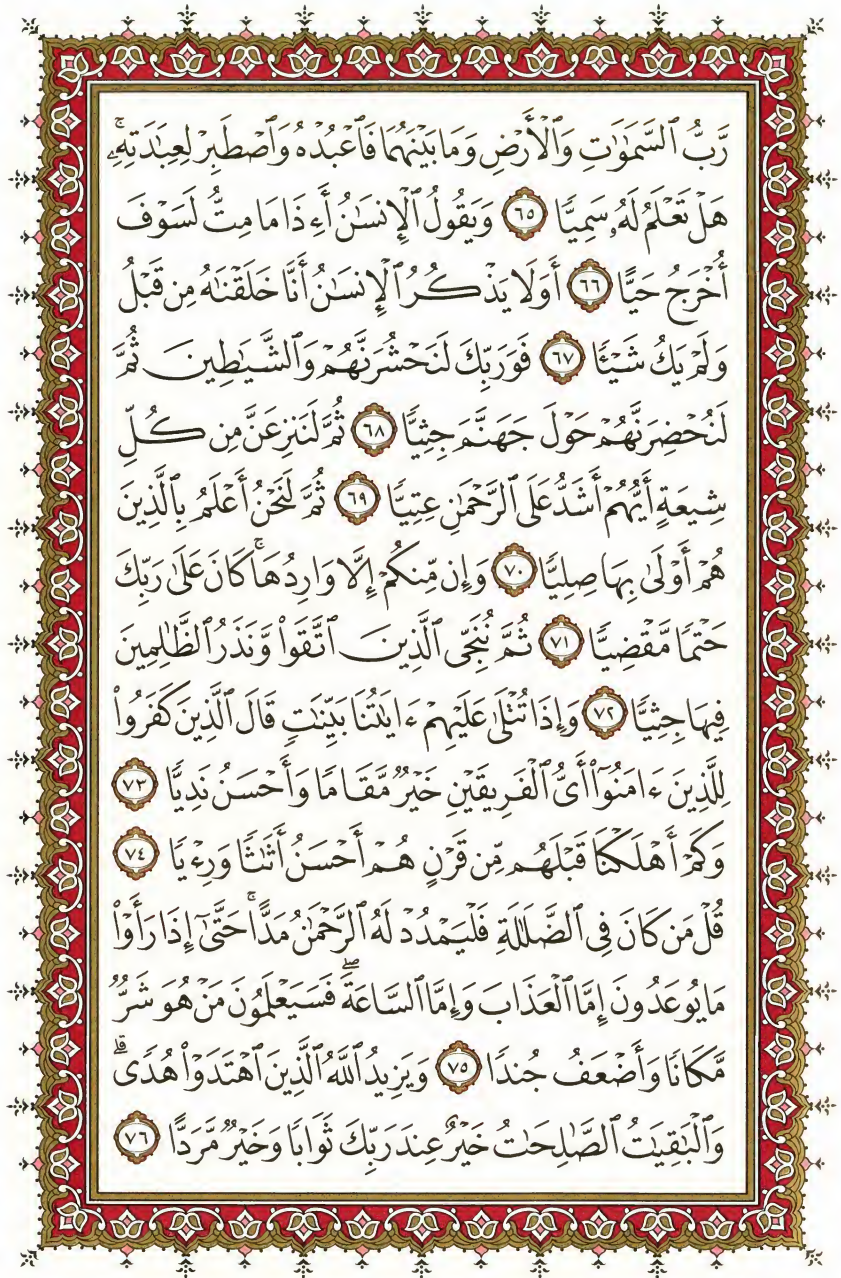 رَّبُّ ٱلسَّمَٰوَٰتِ وَٱلْأَرْضِ وَمَا بَيْنَهُمَا فَٱعْبُدْهُ وَٱصْطَبِرْ لِعِبَٰدَتِهِۦۚ
هَلْ تَعْلَمُ لَهُۥ سَمِيًّا ٦٥ وَيَقُولُ ٱلْإِنسَٰنُ أَءِذَا مَا مِتُّ لَسَوْفَ
أُخْرَجُ حَيًّا ٦٦ أَوَلَا يَذْكُرُ ٱلْإِنسَٰنُ أَنَّا خَلَقْنَٰهُ مِن قَبْلُ
وَلَمْ يَكُ شَيْـًٔا ٦٧ فَوَرَبِّكَ لَنَحْشُرَنَّهُمْ وَٱلشَّيَٰطِينَ ثُمَّ
لَنُحْضِرَنَّهُمْ حَوْلَ جَهَنَّمَ جِثِيًّا ٦٨ ثُمَّ لَنَنزِعَنَّ مِن كُلِّ
شِيعَةٍ أَيُّهُمْ أَشَدُّ عَلَى ٱلرَّحْمَٰنِ عِتِيًّا ٦٩ ثُمَّ لَنَحْنُ أَعْلَمُ بِٱلَّذِينَ
هُمْ أَوْلَىٰ بِهَا صِلِيًّا ٧٠ وَإِن مِّنكُمْ إِلَّا وَارِدُهَاۚ كَانَ عَلَىٰ رَبِّكَ
حَتْمًا مَّقْضِيًّا ٧١ ثُمَّ نُنَجِّى ٱلَّذِينَ ٱتَّقَوا۟ وَّنَذَرُ ٱلظَّٰلِمِينَ
فِيهَا جِثِيًّا ٧٢ وَإِذَا تُتْلَىٰ عَلَيْهِمْ ءَايَٰتُنَا بَيِّنَٰتٍ قَالَ ٱلَّذِينَ كَفَرُوا۟
لِلَّذِينَ ءَامَنُوٓا۟ أَىُّ ٱلْفَرِيقَيْنِ خَيْرٌ مَّقَامًا وَأَحْسَنُ نَدِيًّا ٧٣
وَكَمْ أَهْلَكْنَا قَبْلَهُم مِّن قَرْنٍ هُمْ أَحْسَنُ أَثَٰثًا وَرِءْيًا ٧٤
قُلْ مَن كَانَ فِى ٱلضَّلَٰلَةِ فَلْيَمْدُدْ لَهُ ٱلرَّحْمَٰنُ مَدًّاۚ حَتَّىٰٓ إِذَا رَأَوْا۟
مَا يُوعَدُونَ إِمَّا ٱلْعَذَابَ وَإِمَّا ٱلسَّاعَةَۖ فَسَيَعْلَمُونَ مَنْ هُوَ شَرٌّ
مَّكَانًا وَأَضْعَفُ جُندًا ٧٥ وَيَزِيدُ ٱللَّهُ ٱلَّذِينَ ٱهْتَدَوْا۟ هُدًىۗ
وَٱلْبَٰقِيَٰتُ ٱلصَّٰلِحَٰتُ خَيْرٌ عِندَ رَبِّكَ ثَوَابًا وَخَيْرٌ مَّرَدًّا ٧٦